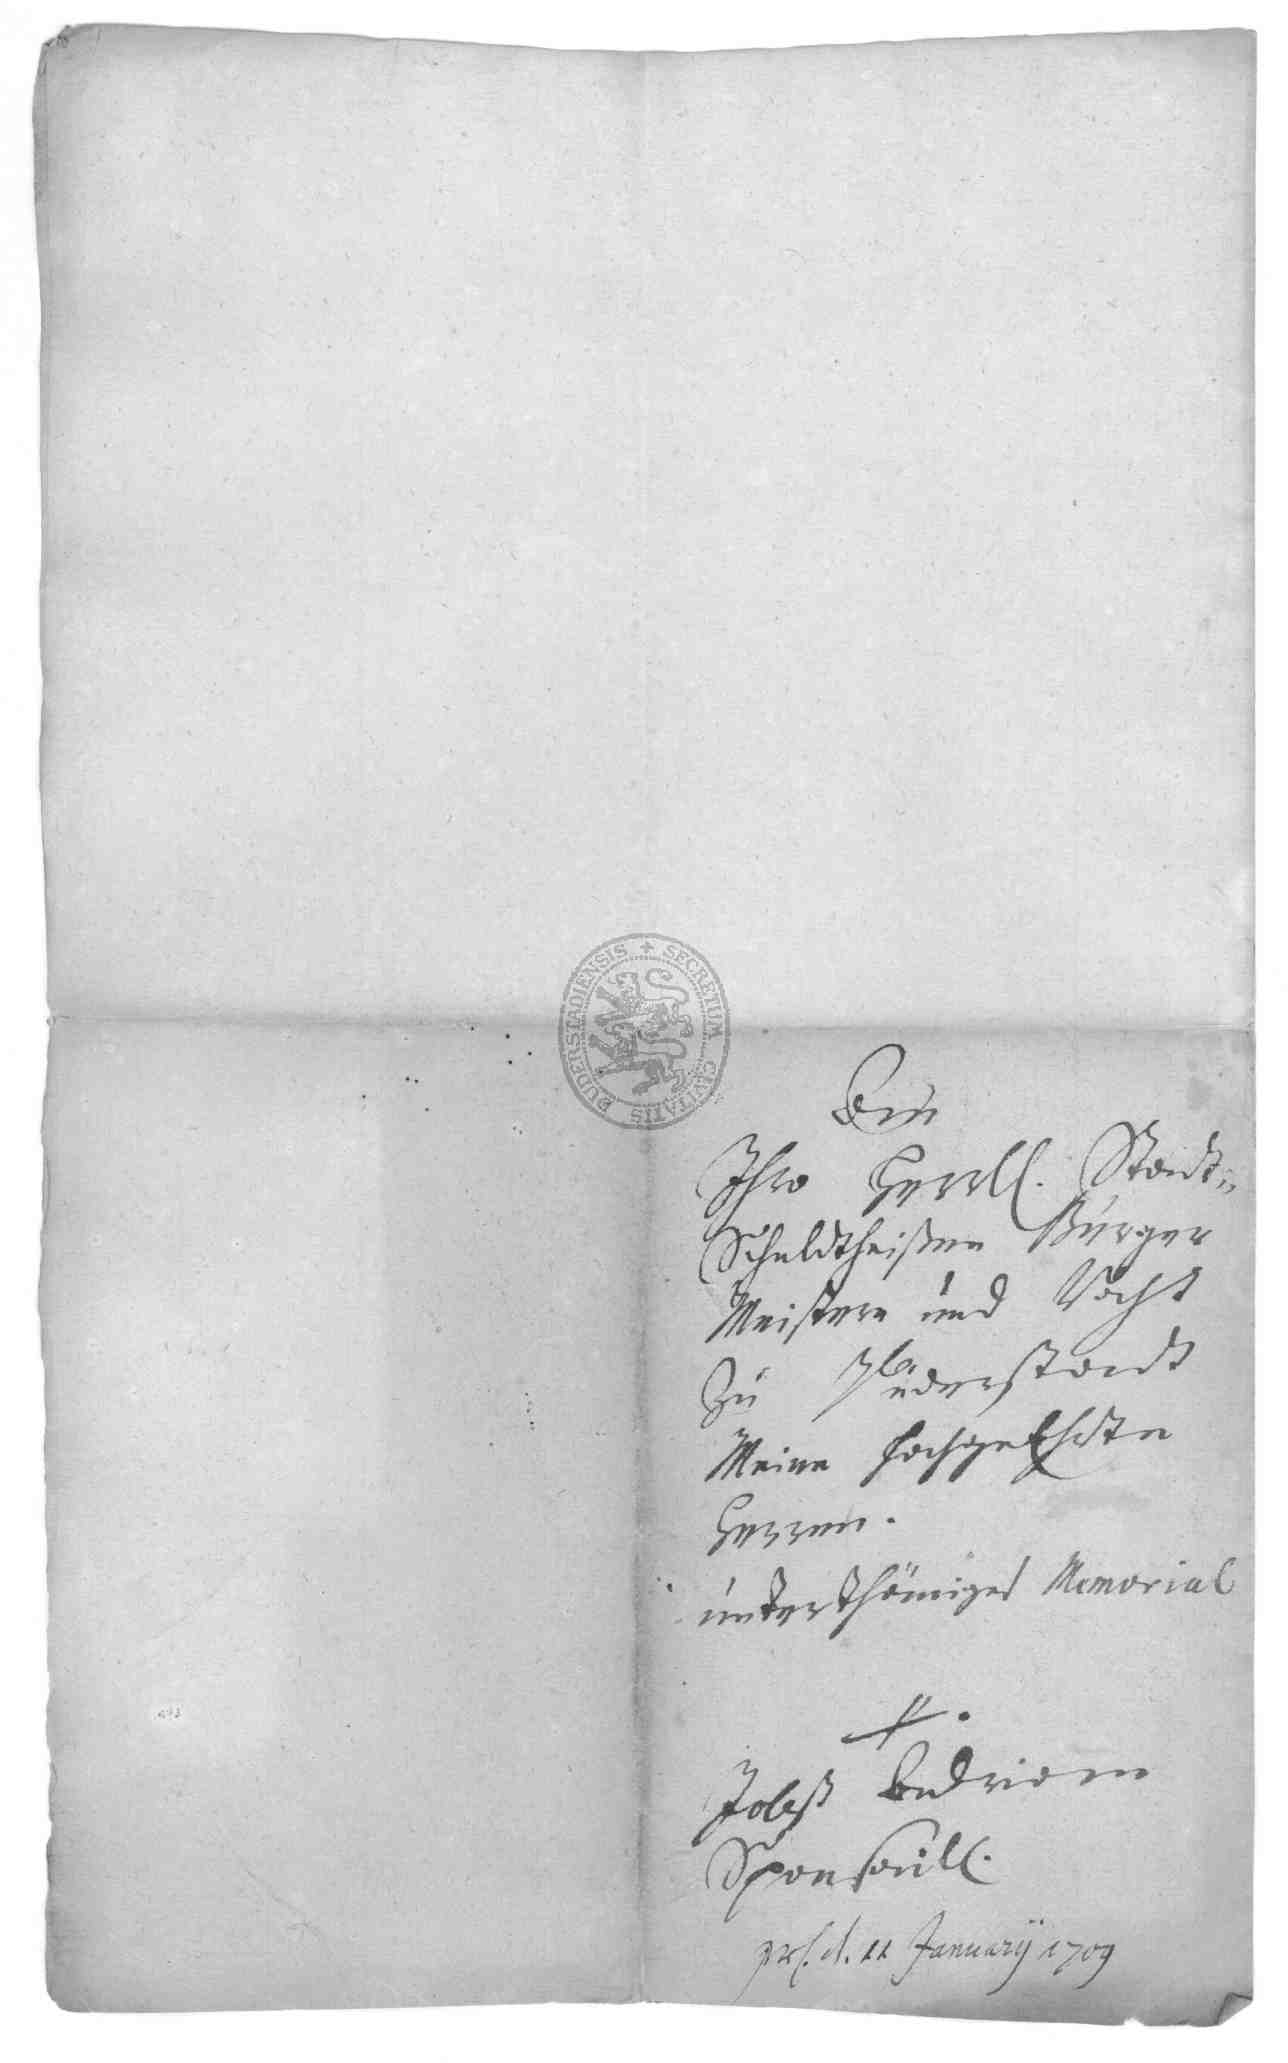 SECRETUM CIVITATIS DUDERSTADIENSIS
An
Ihro Herrll. Stadt=
Schuldtheißen Bürger
Meistere und Vocht
Zu Düderstadt
Meine hochgeEhrte
Herren.
unterthäniges Memorial
Jobst Andrian
prs. d. 11 Januarÿ 1709